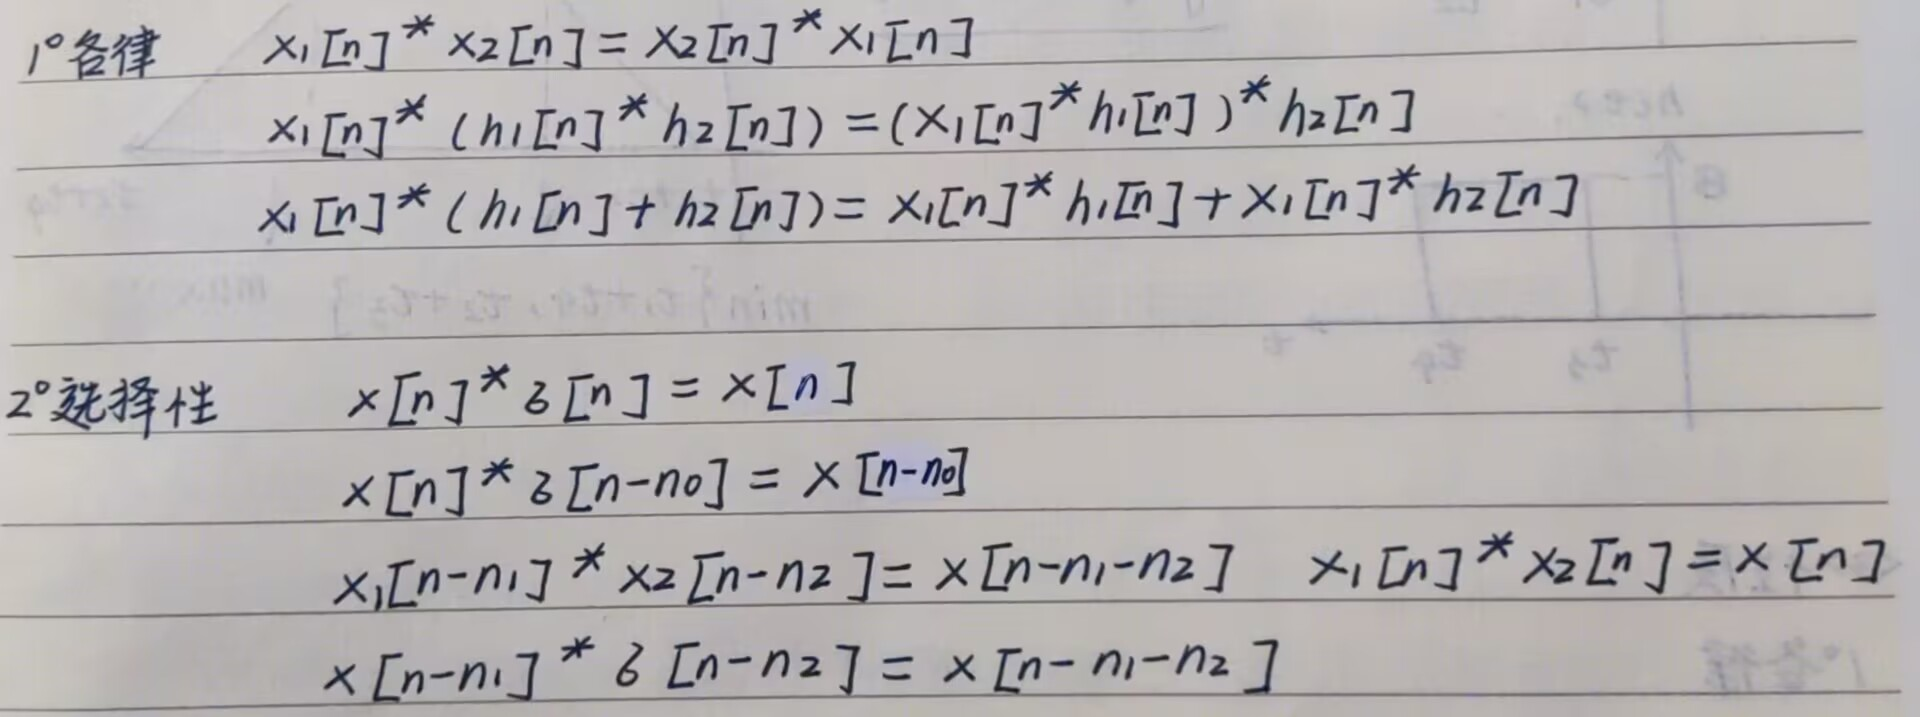 1° 各律 x1[n] * x2[n] = x2[n] * x1[n]
x1[n] * (h1[n] * h2[n]) = (x1[n] * h1[n]) * h2[n]
x1[n] * (h1[n] + h2[n]) = x1[n] * h1[n] + x1[n] * h2[n]
2° 选择性 x[n] * δ[n] = x[n]
x[n] * δ[n-n0] = x[n-n0]
x1[n-n1] * x2[n-n2] = x[n-n1-n2] x1[n] * x2[n] = x[n]
x[n-n1] * δ[n-n2] = x[n-n1-n2]